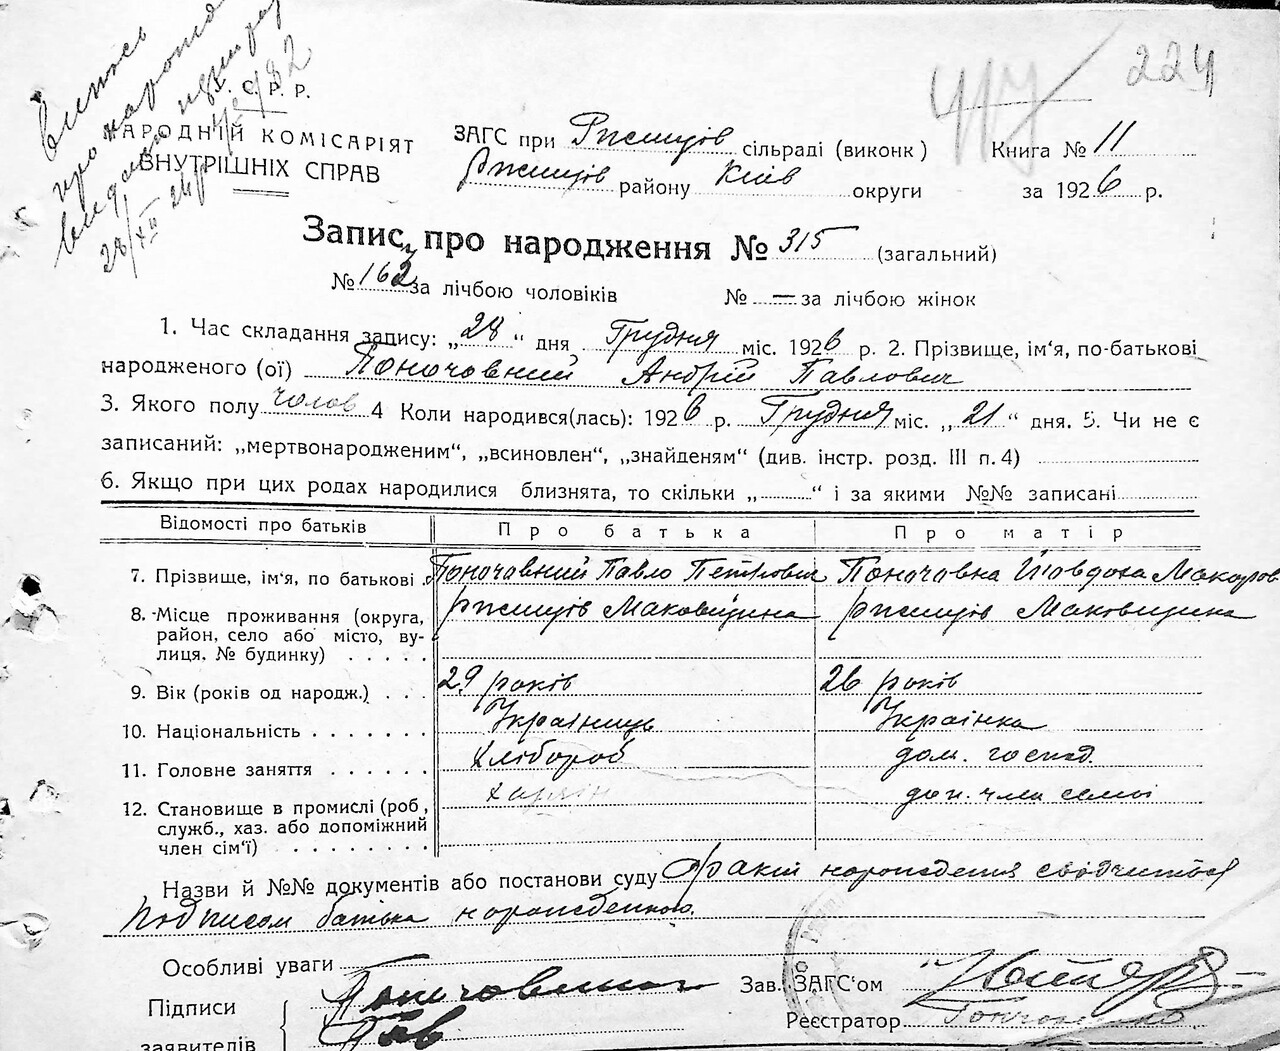 224
У. С. Р. Р.
НАРОДНІЙ КОМІСАРІЯТ
ВНУТРІШНІХ СПРАВ
Витяг
про народж
видано
28/XII 26 р
ЗАГС при Ржищів сільраді (виконк)
Ржищів району Київ округи
Книга № 11
за 1926 р.
Запис про народження № 315 (загальний)
№ 162 за лічбою чоловіків № — за лічбою жінок
1. Час складання запису: „28“ дня Грудня міс. 1926 р. 2. Прізвище, ім‘я, по-батькові
народженого (ої) Поночовний Андрій Павлович
3. Якого полу чолов 4 Коли народився(лась): 1926 р. Грудня міс. „21“ дня. 5. Чи не є
записаний: „мертвонародженим“, „всиновлен“, „знайденям“ (див. інстр. розд. III п. 4)
6. Якщо при цих родах народилися близнята, то скільки „ “ і за якими №№ записані
Відомості про батьків Про батька Про матір
7. Прізвище, ім‘я, по батькові Поночовний Павло Петрович Поночовна Йовдоха Макаров
8. Місце проживання (округа, Ржищів Маковищина Ржищів Маковищина
район, село або місто, ву-
лиця. № будинку)
9. Вік (років од народж.) 29 років 26 років
10. Національність Українець Українка
11. Головне заняття хлібороб дом. госпад.
12. Становище в промислі (роб, хазяїн доп. член семьї
служб., хаз. або допоміжний
член сім‘ї)
Назви й №№ документів або постанови суду Факт народження свідчиться
подписом батька народженного.
Особливі уваги
Підписи Поночовний
заявителів Пав
Зав. ЗАГС‘ом
Реєстратор